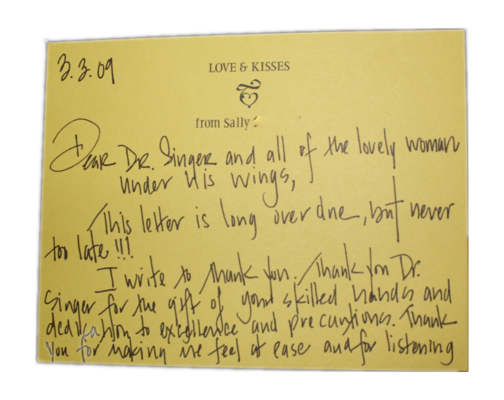 3.3.09
LOVE & KISSES
from Sally
Dear Dr. Singer and all of the lovely woman
under his wings,
This letter is long over due, but never
too late!!!
I write to thank you. Thank you Dr.
Singer for the gift of your skilled hands and
dedication to excellence and precautions. Thank
you for making me feel at ease and for listening